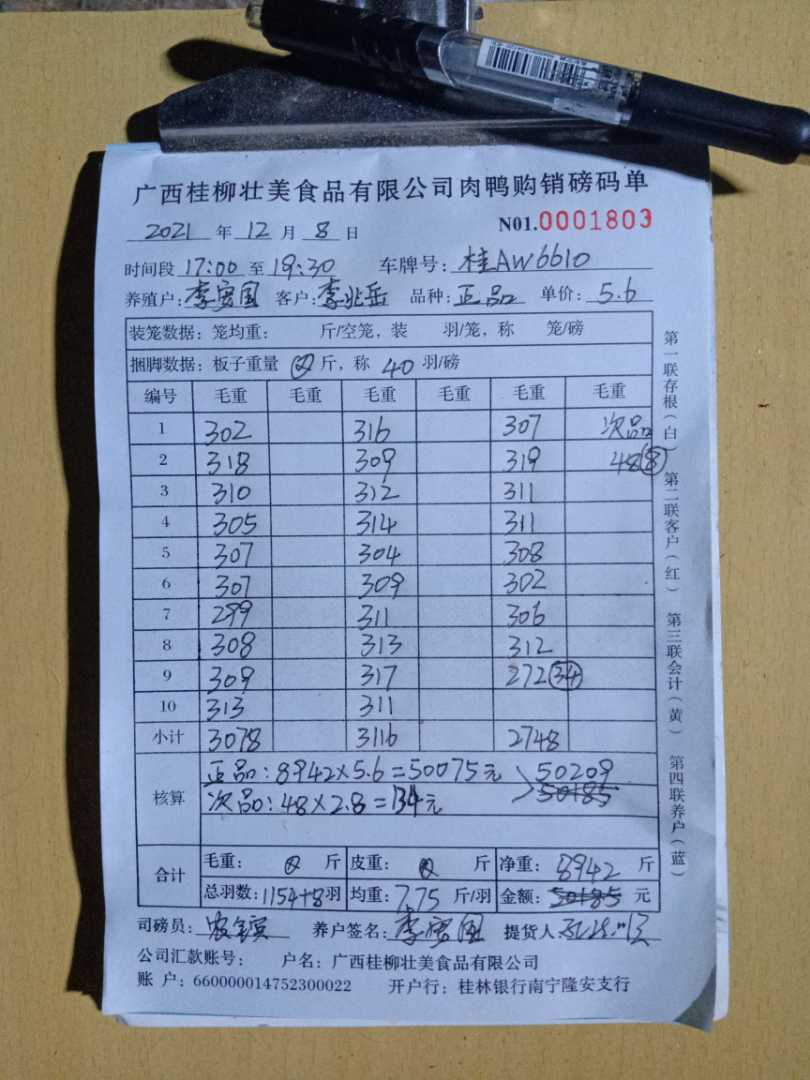 广西桂柳壮美食品有限公司肉鸭购销磅码单
2021 年 12 月 8 日 N01.0001803
时间段 17:00 至 19:30 车牌号：桂AW6610
养殖户：李宝国 客户：李兆岳 品种：正品 单价：5.6
装笼数据：笼均重： 斤/空笼，装 羽/笼，称 笼/磅
捆脚数据：板子重量 斤，称 40 羽/磅
编号 毛重 毛重 毛重 毛重 毛重 毛重
1 302 316 307 次品
2 318 309 319 48(8)
3 310 312 311
4 305 314 311
5 307 304 308
6 307 309 302
7 299 311 306
8 308 313 312
9 309 317 272(34)
10 313 311
小计 3078 3116 2748
核算 正品：8942×5.6=50075元 50209
次品：48×2.8=134元 50185
合计 毛重： 斤 皮重： 斤 净重：8942 斤
总羽数：1154+8羽 均重：7.75 斤/羽 金额：50185 元
司磅员： 养户签名：李宝国 提货人
公司汇款账号： 户名：广西桂柳壮美食品有限公司
账 户：660000014752300022 开户行：桂林银行南宁隆安支行
第一联存根（白） 第二联客户（红） 第三联会计（黄） 第四联养户（蓝）